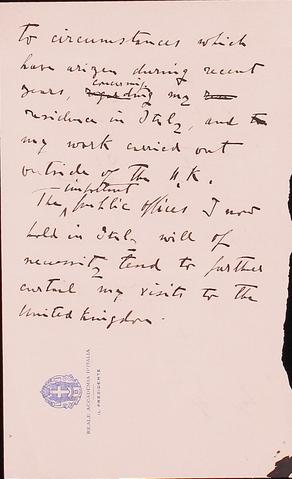 to circumstances which
have arizen during recent
years, concerning
regarding my
residence in Italy, and
my work carried out
outside of the U.K.
important
The public offices I now
hold in Italy will of
necessity tend to further
curtail my visits to the
United Kingdom.
REALE ACCADEMIA D'ITALIA
IL PRESIDENTE